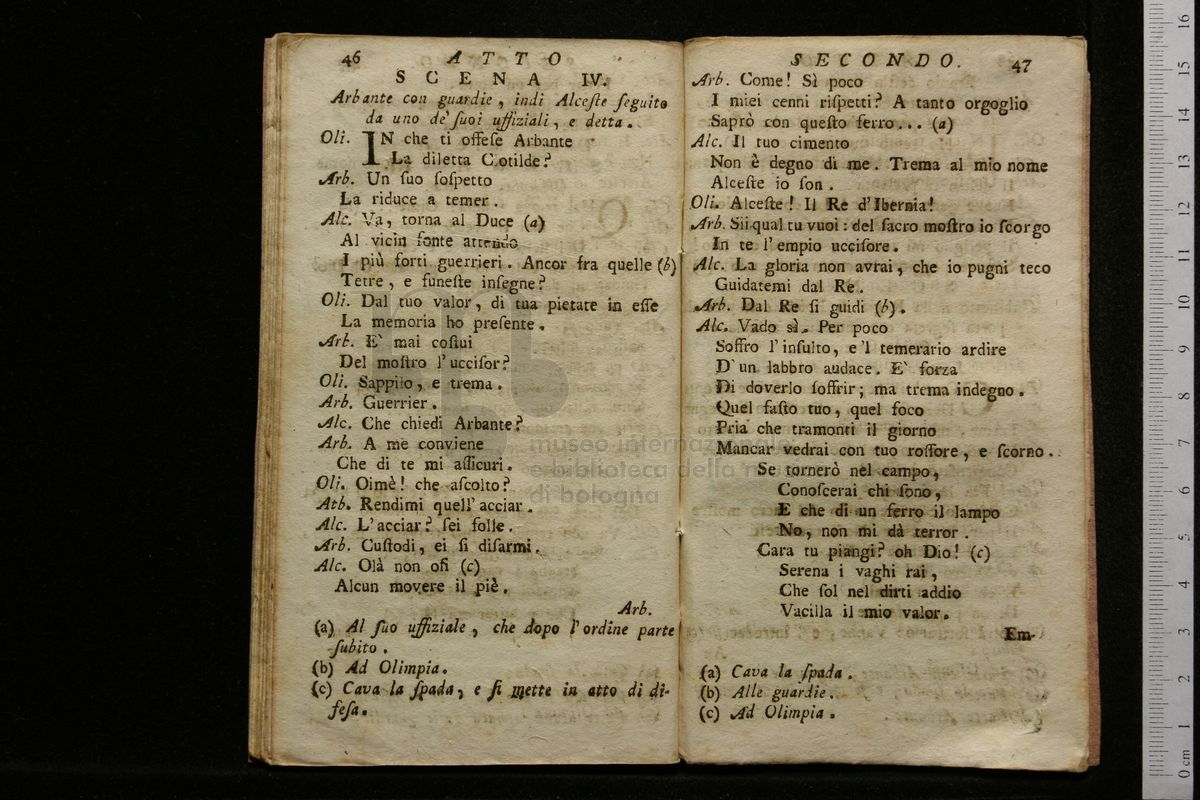 46 ATTO
SCENA IV.
Arbante con guardie, indi Alceſte ſeguito
da uno de' ſuoi uffiziali, e detta.
Oli. IN che ti offeſe Arbante
La diletta Clotilde?
Arb. Un ſuo ſoſpetto
La riduce a temer.
Alc. Va, torna al Duce (a)
Al vicin fonte attendo
I più forti guerrieri. Ancor fra quelle (b)
Tetre, e funeſte inſegne?
Oli. Dal tuo valor, di tua pietate in eſſe
La memoria ho preſente.
Arb. E' mai coſtui
Del moſtro l'ucciſor?
Oli. Sappilo, e trema.
Arb. Guerrier.
Alc. Che chiedi Arbante?
Arb. A me conviene
Che di te mi aſſicuri.
Oli. Oimè! che aſcolto?
Atb. Rendimi quell' acciar.
Alc. L'acciar? ſei folle.
Arb. Cuſtodi, ei ſi diſarmi.
Alc. Olà non oſi (c)
Alcun movere il piè.
Arb.
(a) Al ſuo uffiziale, che dopo l'ordine parte
ſubito.
(b) Ad Olimpia.
(c) Cava la ſpada, e ſi mette in atto di di-
feſa.
SECONDO. 47
Arb. Come! Sì poco
I miei cenni riſpetti? A tanto orgoglio
Saprò con queſto ferro... (a)
Alc. Il tuo cimento
Non è degno di me. Trema al mio nome
Alceſte io ſon.
Oli. Alceſte! Il Re d'Ibernia!
Arb. Sii qual tu vuoi: del ſacro moſtro io ſcorgo
In te l'empio ucciſore.
Alc. La gloria non avrai, che io pugni teco
Guidatemi dal Re.
Arb. Dal Re ſi guidi (b).
Alc. Vado sì. Per poco
Soffro l'inſulto, e 'l temerario ardire
D'un labbro audace. E' forza
Di doverlo ſoffrir; ma trema indegno.
Quel faſto tuo, quel foco
Pria che tramonti il giorno
Mancar vedrai con tuo roſſore, e ſcorno.
Se tornerò nel campo,
Conoſcerai chi ſono,
E che di un ferro il lampo
No, non mi dà terror.
Cara tu piangi? oh Dio! (c)
Serena i vaghi rai,
Che ſol nel dirti addio
Vacilla il mio valor.
Em-
(a) Cava la ſpada.
(b) Alle guardie.
(c) Ad Olimpia.
museo internazionale
e biblioteca della
di bologna
0 cm 1 2 3 4 5 6 7 8 9 10 11 12 13 14 15 16